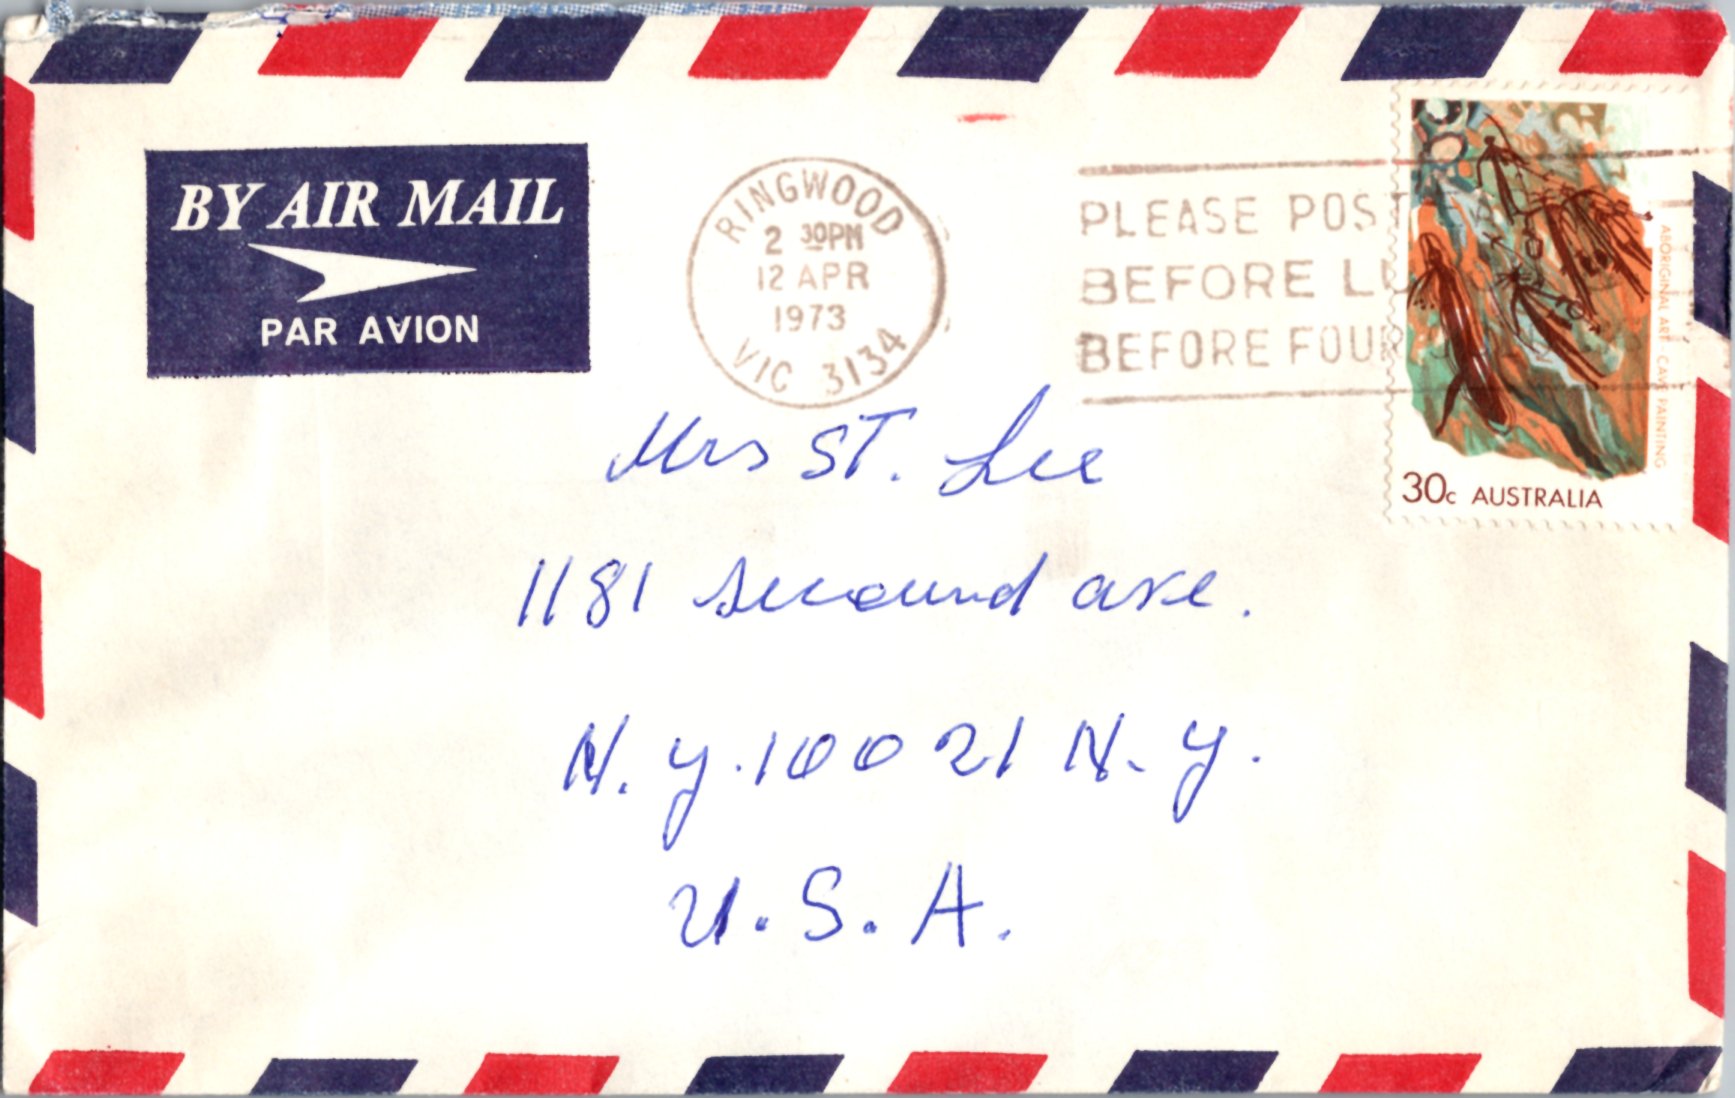 BY AIR MAIL
PAR AVION
RINGWOOD
2 30PM
12 APR
1973
VIC 3134
PLEASE POST
BEFORE LU
BEFORE FOUR
ABORIGINAL ART - CAVE PAINTING
30c AUSTRALIA
Mrs ST. Lee
1181 Secound ave.
N.Y. 10021 N.Y.
U.S.A.